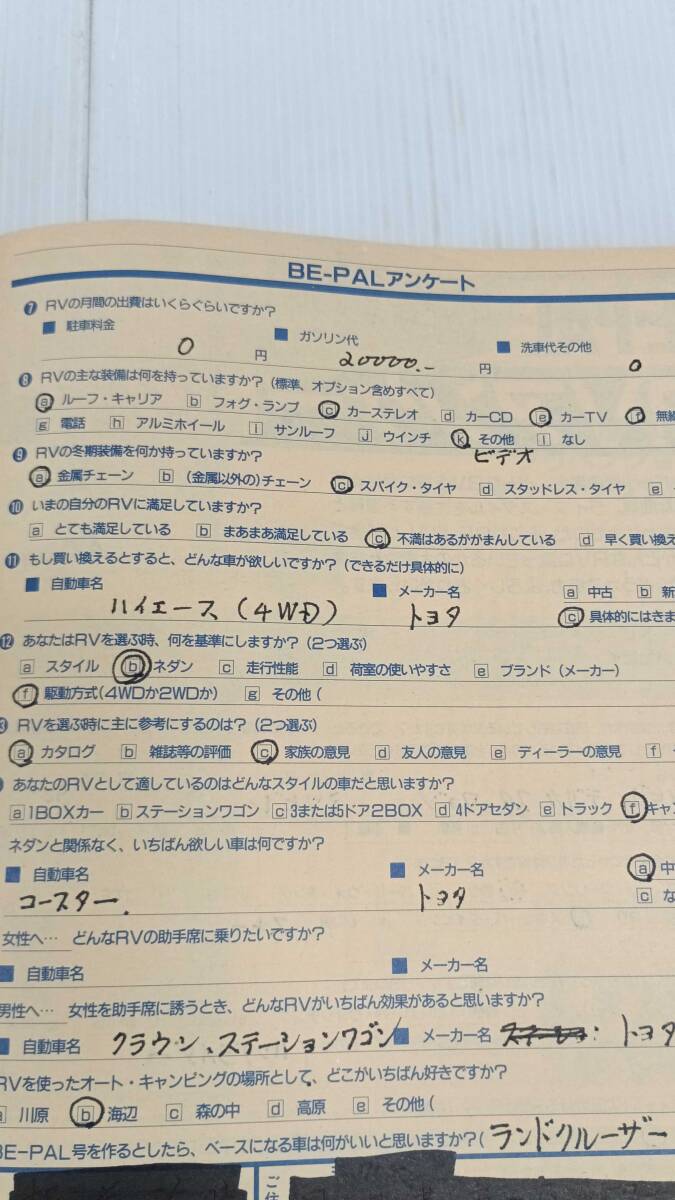 BE-PALアンケート
❼ RVの月間の出費はいくらぐらいですか?
■ 駐車料金 ■ ガソリン代 ■ 洗車代その他
0 円 20000.- 円 0
❽ RVの主な装備は何を持っていますか?(標準、オプション含めすべて)
a ルーフ・キャリア b フォグ・ランプ c カーステレオ d カーCD e カーTV f 無線
g 電話 h アルミホイール i サンルーフ J ウインチ k その他 l なし
ビデオ
❾ RVの冬期装備を何か持っていますか?
a 金属チェーン b (金属以外の)チェーン c スパイク・タイヤ d スタッドレス・タイヤ e
❿ いまの自分のRVに満足していますか?
a とても満足している b まあまあ満足している c 不満はあるががまんしている d 早く買い換え
⓫ もし買い換えるとすると、どんな車が欲しいですか?(できるだけ具体的に)
■ 自動車名 ■ メーカー名 a 中古 b 新
ハイエース(4WD) トヨタ c 具体的にはきま
⓬ あなたはRVを選ぶ時、何を基準にしますか?(2つ選ぶ)
a スタイル b ネダン c 走行性能 d 荷室の使いやすさ e ブランド(メーカー)
f 駆動方式(4WDか2WDか) g その他(
3 RVを選ぶ時に主に参考にするのは?(2つ選ぶ)
a カタログ b 雑誌等の評価 c 家族の意見 d 友人の意見 e ディーラーの意見 f
あなたのRVとして適しているのはどんなスタイルの車だと思いますか?
a 1BOXカー b ステーションワゴン c 3または5ドア2BOX d 4ドアセダン e トラック f キャン
ネダンと関係なく、いちばん欲しい車は何ですか?
■ 自動車名 ■ メーカー名 a 中
コースター. トヨタ c な
女性へ… どんなRVの助手席に乗りたいですか?
■ 自動車名 ■ メーカー名
男性へ… 女性を助手席に誘うとき、どんなRVがいちばん効果があると思いますか?
■ 自動車名 クラウン、ステーションワゴン ■ メーカー名 : トヨタ
RVを使ったオート・キャンピングの場所として、どこがいちばん好きですか?
a 川原 b 海辺 c 森の中 d 高原 e その他(
BE-PAL号を作るとしたら、ベースになる車は何がいいと思いますか?( ランドクルーザー
ご
住